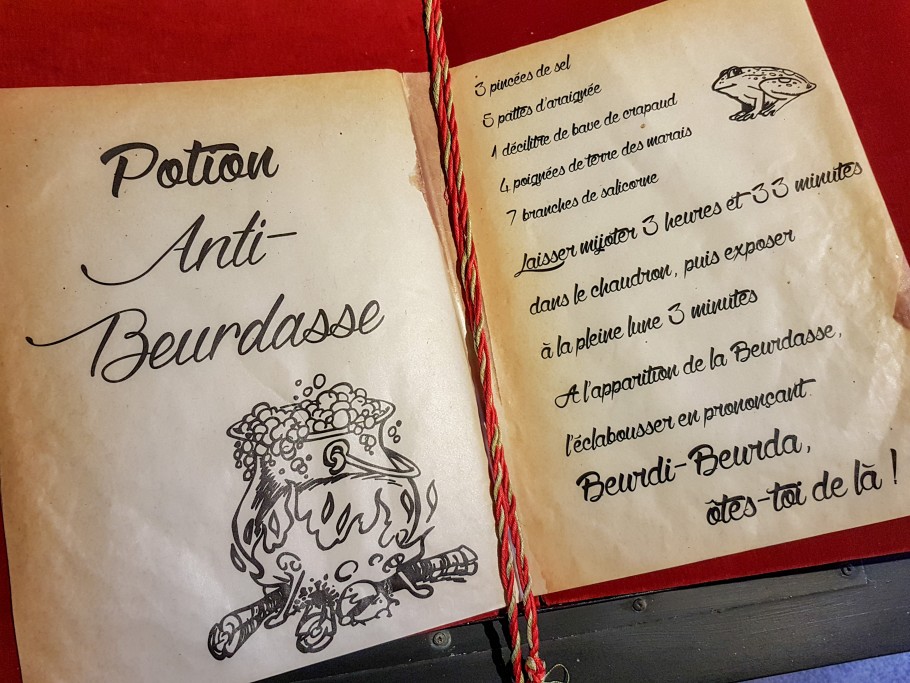 Potion
Anti-
Beurdasse
3 pincées de sel
5 pattes d'araignée
1 décilitre de bave de crapaud
4 poignées de terre des marais
7 branches de salicorne
Laisser mijoter 3 heures et 33 minutes
dans le chaudron, puis exposer
à la pleine lune 3 minutes
A l'apparition de la Beurdasse,
l'éclabousser en prononçant:
Beurdi-Beurda,
ôtes-toi de là !